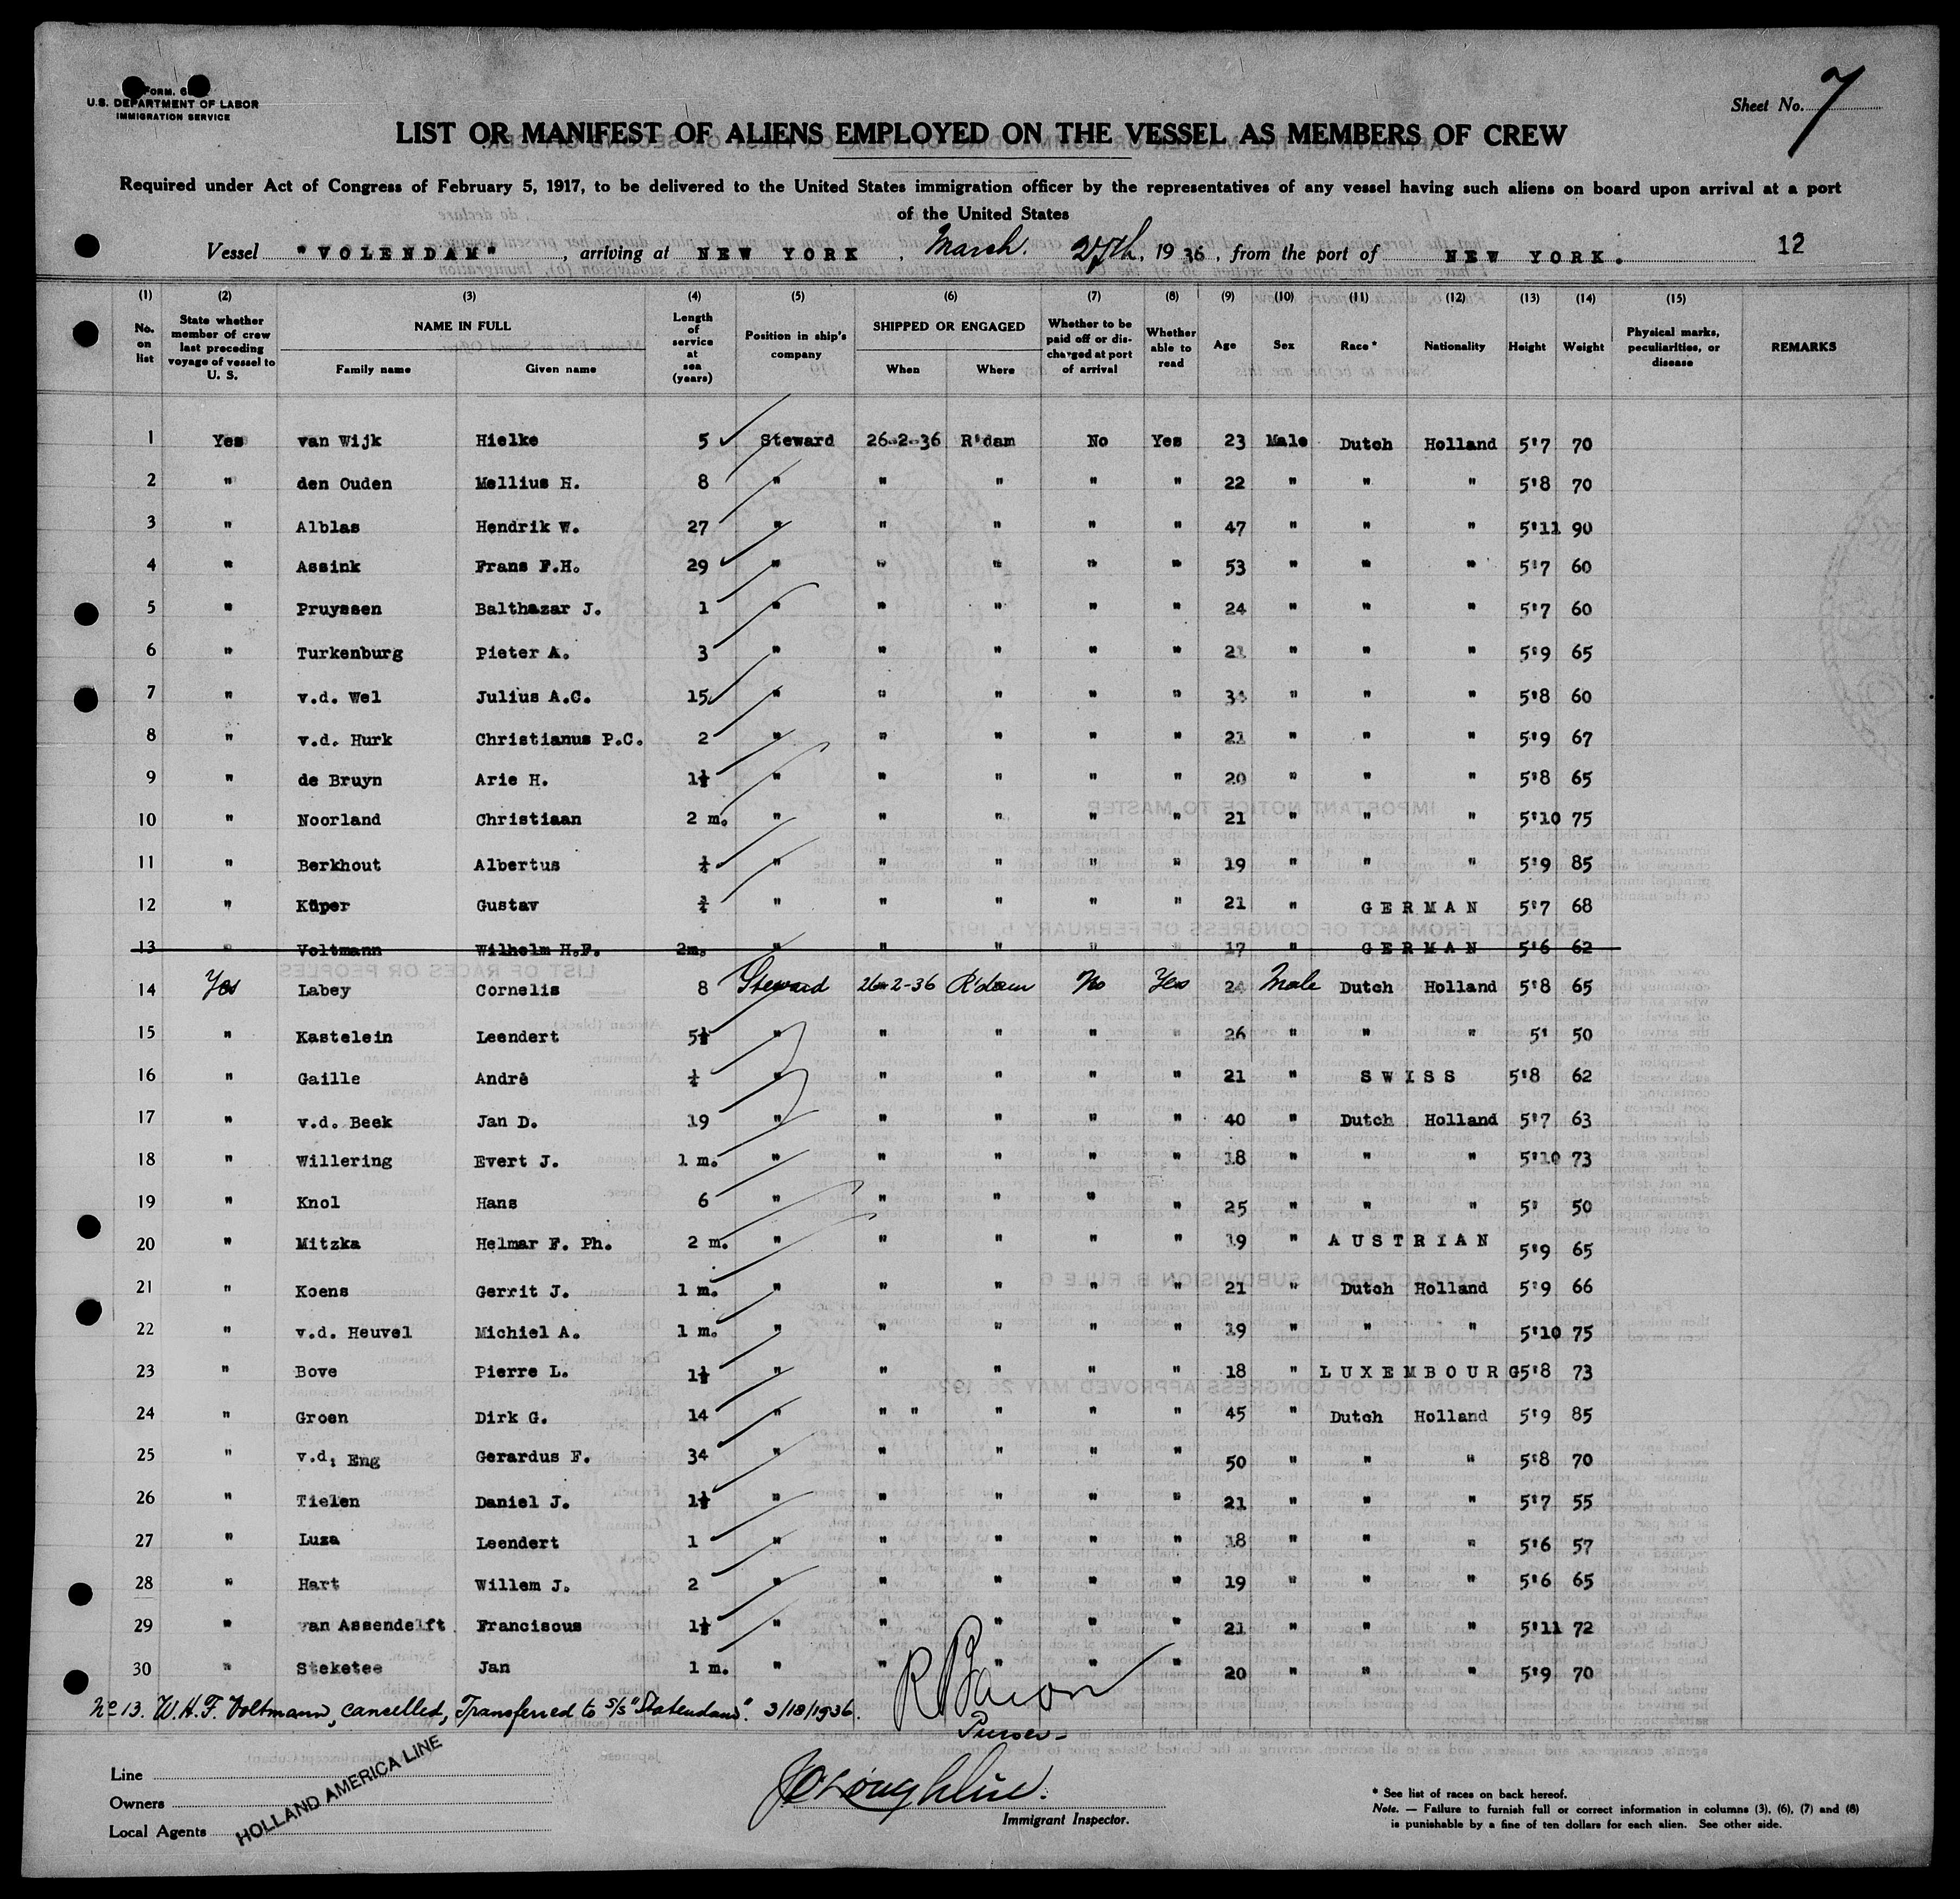 FORM. 6
U.S. DEPARTMENT OF LABOR
IMMIGRATION SERVICE
Sheet No. 7
LIST OR MANIFEST OF ALIENS EMPLOYED ON THE VESSEL AS MEMBERS OF CREW
Required under Act of Congress of February 5, 1917, to be delivered to the United States immigration officer by the representatives of any vessel having such aliens on board upon arrival at a port
of the United States
Vessel "VOLENDAM", arriving at NEW YORK, March. 27th, 1936, from the port of NEW YORK. 12
(1) (2) (3) (4) (5) (6) (7) (8) (9) (10) (11) (12) (13) (14) (15)
No. on list State whether member of crew last preceding voyage of vessel to U. S. NAME IN FULL Family name Given name Length of service at sea (years) Position in ship's company SHIPPED OR ENGAGED When Where Whether to be paid off or discharged at port of arrival Whether able to read Age Sex Race* Nationality Height Weight Physical marks, peculiarities, or disease REMARKS
1 Yes van Wijk Hielke 5 Steward 26-2-36 R'dam No Yes 23 Male Dutch Holland 5'7 70
2 " den Ouden Mellius H. 8 " " " " " 22 " " " 5'8 70
3 " Alblas Hendrik W. 27 " " " " " 47 " " " 5'11 90
4 " Assink Frans F.H. 29 " " " " " 53 " " " 5'7 60
5 " Pruyssen Balthazar J. 1 " " " " " 24 " " " 5'7 60
6 " Turkenburg Pieter A. 3 " " " " " 21 " " " 5'9 65
7 " v.d. Wel Julius A.C. 15 " " " " " 34 " " " 5'8 60
8 " v.d. Hurk Christianus P.C. 2 " " " " " 21 " " " 5'9 67
9 " de Bruyn Arie H. 1½ " " " " " 20 " " " 5'8 65
10 " Noorland Christiaan 2 m. " " " " " 21 " " " 5'10 75
11 " Berkhout Albertus " " " " " 19 " " " 5'9 85
12 " Küper Gustav ¾ " " " " " 21 " GERMAN 5'7 68
13 " Voltmann Wilhelm H.F. 2m. " " " " " 17 " GERMAN 5'6 62
14 Yes Labey Cornelis 8 Steward 26-2-36 R'dam No Yes 24 Male Dutch Holland 5'8 65
15 " Kastelein Leendert 5½ " " " " " 26 " " " 5' 50
16 " Gaille André " " " " " 21 " SWISS 5'8 62
17 " v.d. Beek Jan D. 19 " " " " " 40 " Dutch Holland 5'7 63
18 " Willering Evert J. 1 m. " " " " " 18 " " " 5'10 73
19 " Knol Hans 6 " " " " " 25 " " " 5' 50
20 " Mitzka Helmar F. Ph. 2 m. " " " " " 19 " AUSTRIAN 5'9 65
21 " Koens Gerrit J. 1 m. " " " " " 21 " Dutch Holland 5'9 66
22 " v.d. Heuvel Michiel A. 1 m. " " " " " 19 " " " 5'10 75
23 " Bove Pierre L. 1½ " " " " " 18 " LUXEMBOURG 5'8 73
24 " Groen Dirk G. 14 " " " " " " 45 " Dutch Holland 5'9 85
25 " v.d. Eng Gerardus F. 34 " " " " " 50 " " " 5'8 70
26 " Tielen Daniel J. 1½ " " " " " 21 " " " 5'7 55
27 " Luza Leendert 1 " " " " " 18 " " " 5'6 57
28 " Hart Willem J. 2 " " " " " 19 " " " 5'6 65
29 " van Assendelft Franciscus 1½ " " " " " 21 " " " 5'11 72
30 " Steketee Jan 1 m. " " " " " 20 " " " 5'9 70
No 13. W.H.F. Voltmann, cancelled, Transferred to s/s "Statendam". 3/18/1936.
Purser
Line
Owners
Local Agents
HOLLAND AMERICA LINE
Immigrant Inspector.
* See list of races on back hereof.
Note. — Failure to furnish full or correct information in columns (3), (6), (7) and (8)
is punishable by a fine of ten dollars for each alien. See other side.